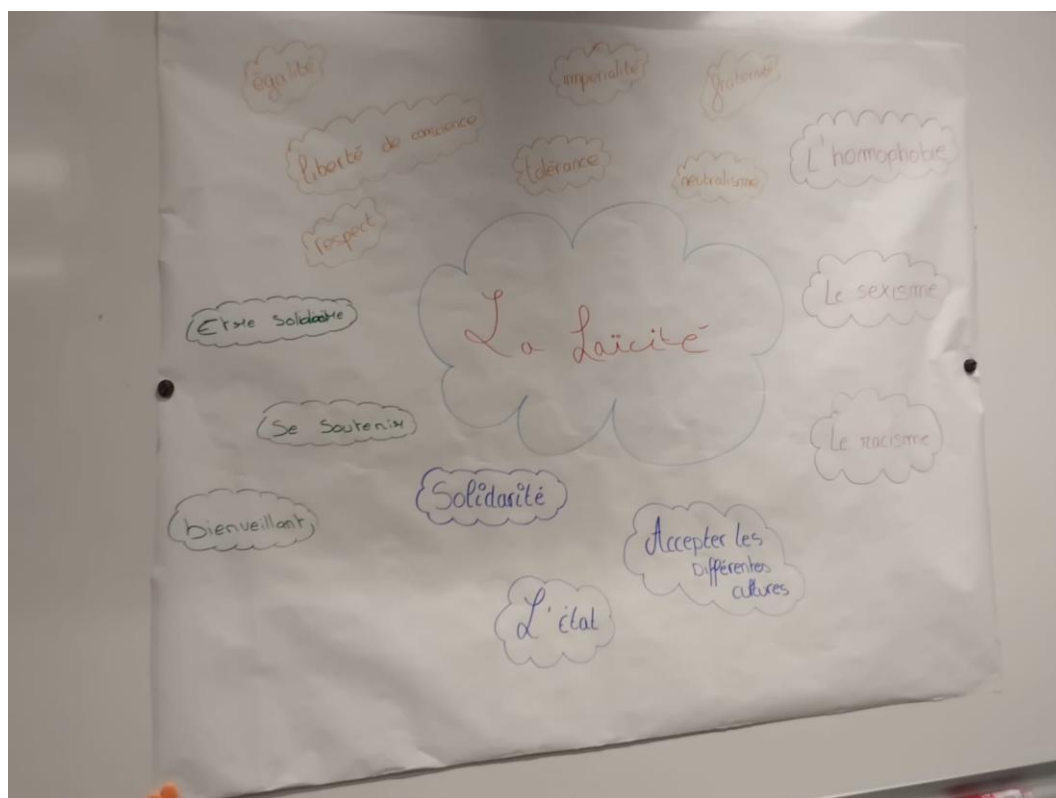 égalité
impérialité
fraternité
liberté de conscience
tolérance
neutralisme
L'homophobie
respect
La Laïcité
Le sexisme
Etre Solidaire
Se Soutenir
Le racisme
Solidarité
bienveillant
Accepter les
Différentes
cultures
L'état